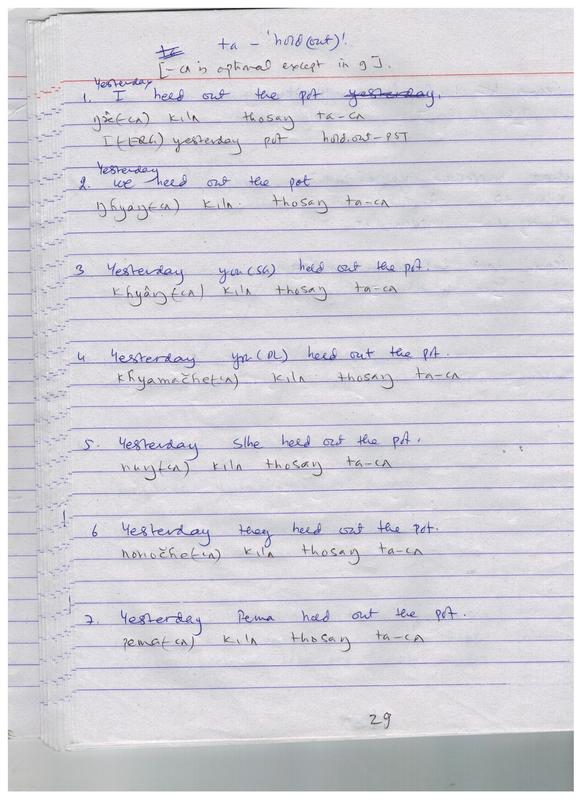 ta - 'hold (out)'.
[-cʌ is optional except in 9].
Yesterday
1. I held out the pot yesterday.
kilʌ thosaŋ ta-cʌ
I(-ERG) yesterday pot hold.out-PST
Yesterday
2. we held out the pot
kilʌ thosaŋ ta-cʌ
3 Yesterday you (SG) held out the pot.
khyâŋ(-cʌ) kilʌ thosaŋ ta-cʌ
4 Yesterday you (PL) held out the pot.
khyamačhe(-cʌ) kilʌ thosaŋ ta-cʌ
5. Yesterday S/he held out the pot.
kilʌ thosaŋ ta-cʌ
6 Yesterday they held out the pot.
nonočhe(-cʌ) kilʌ thosaŋ ta-cʌ
7. Yesterday Pema held out the pot.
pema(-cʌ) kilʌ thosaŋ ta-cʌ
29